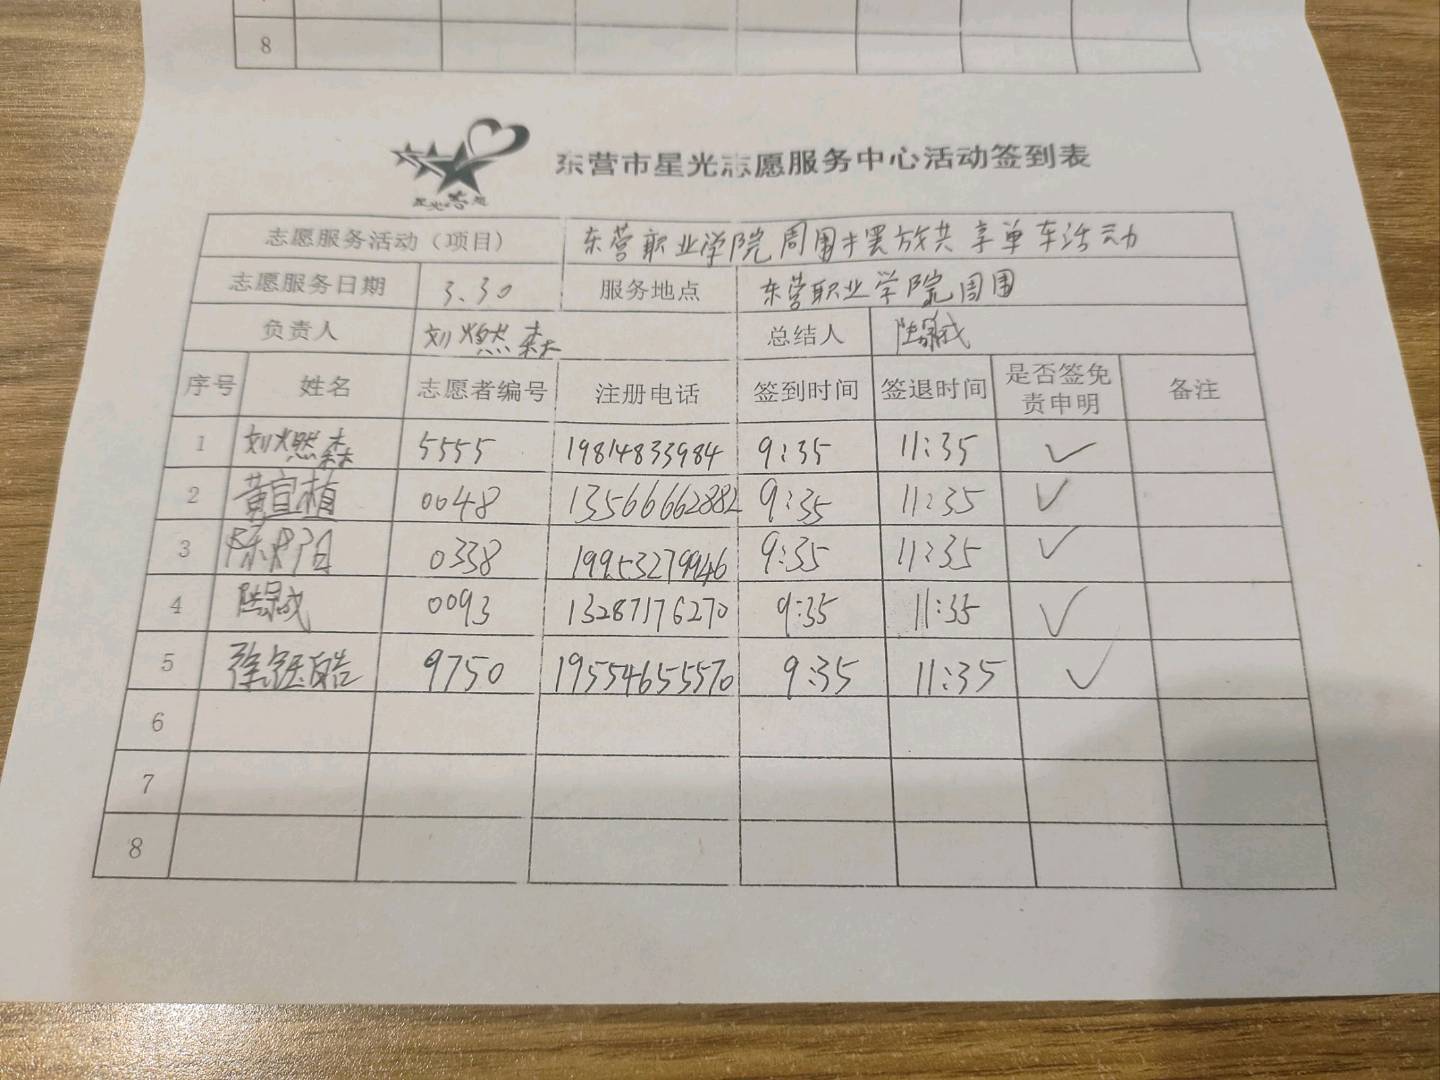 8
星光志愿
东营市星光志愿服务中心活动签到表
志愿服务活动（项目） 东营职业学院周围摆放共享单车活动
志愿服务日期 3.30 服务地点 东营职业学院周围
负责人 刘燃森 总结人
序号 姓名 志愿者编号 注册电话 签到时间 签退时间 是否签免责申明 备注
1 刘燃森 5555 19814833984 9:35 11:35 ✓
2 黄宣植 0048 13566662882 9:35 11:35 ✓
3 0338 19953279946 9:35 11:35 ✓
4 0093 13287176270 9:35 11:35 ✓
5 徐钰皓 9750 19554655570 9:35 11:35 ✓
6
7
8